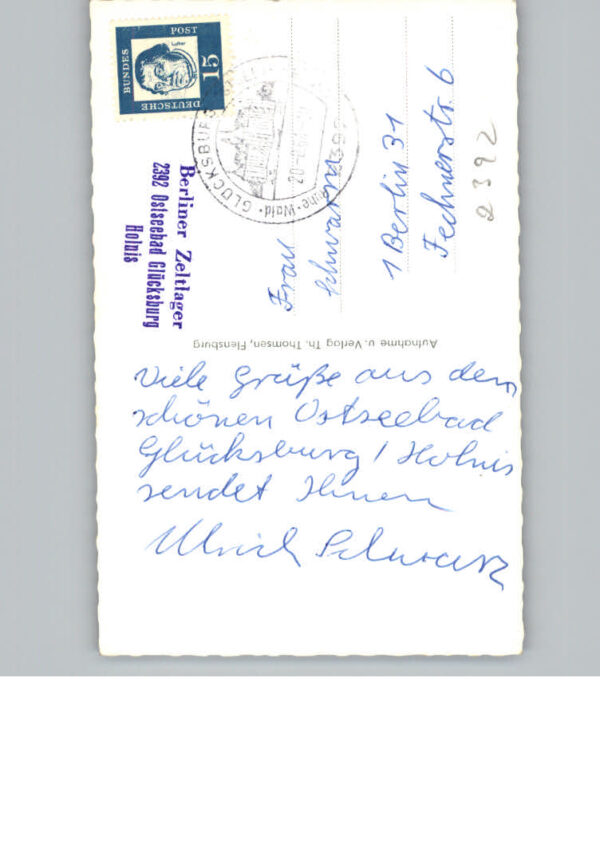 DEUTSCHE
BUNDES
POST
15
Luther
GLÜCKSBURG
Wald
2392
Berliner Zeltlager
2392 Ostseebad Glücksburg
Holnis
Frau
Schwarz
1 Berlin 31
Fechnerstr. 6
2392
Aufnahme u. Verlag Th. Thomsen, Flensburg
Viele Grüße aus dem
schönen Ostseebad
Glücksburg / Holnis
sendet Ihnen
Ulrich Schwarz